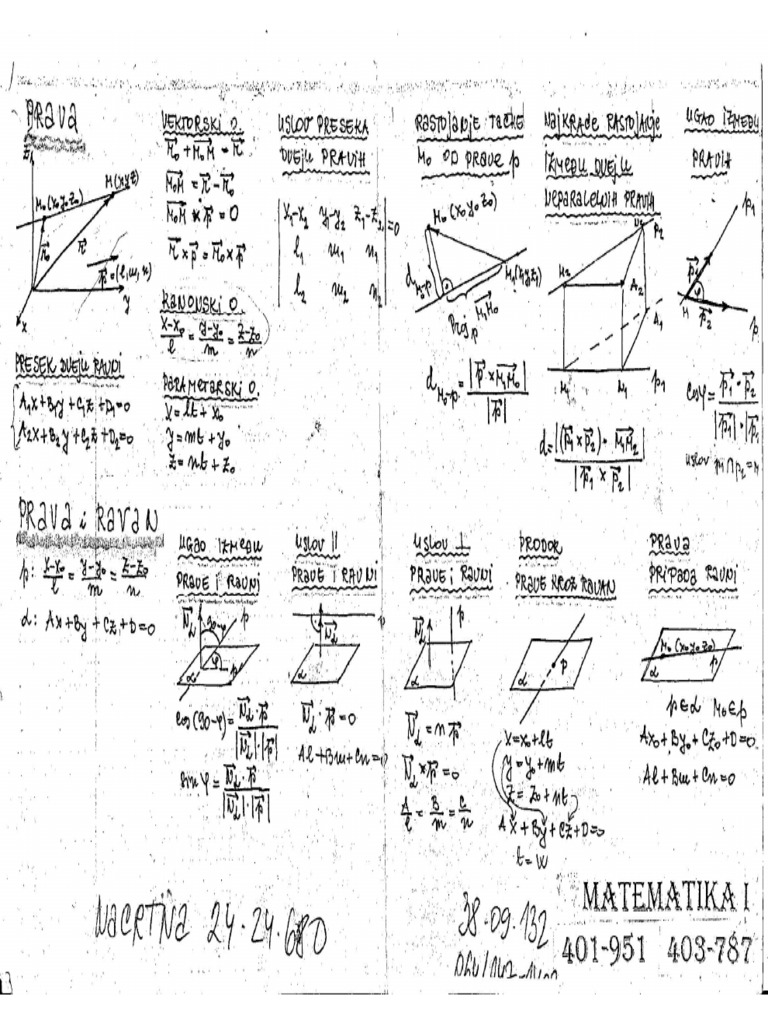 PRAVA
z
M(xyz)
M₀(x₀y₀z₀)
r⃗₀
r⃗
p⃗=(l,m,n)
y
x
PRESEK DVEJU RAVNI
A₁x+B₁y+C₁z+D₁=0
A₂x+B₂y+C₂z+D₂=0
VEKTORSKI O.
r⃗₀+M₀M⃗=r⃗
M₀M⃗=r⃗-r⃗₀
M₀M⃗×p⃗=0
r⃗×p⃗=r⃗₀×p⃗
KANONSKI O.
(x-x₀)/l=(y-y₀)/m=(z-z₀)/n
PARAMETARSKI O.
x=lt+x₀
y=mt+y₀
z=nt+z₀
USLOV PRESEKA
DVEJU PRAVIH
|x₁-x₂ y₁-y₂ z₁-z₂|=0
l₁ m₁ n₁
l₂ m₂ n₂
RASTOJANJE TAČKE
M₀ OD PRAVE p
M₀(x₀y₀z₀)
d M₀-p
M₁(x₁y₁z₁)
Proj p M₁M₀⃗
d M₀-p=|p⃗×M₁M₀⃗|/|p⃗|
NAJKRAĆE RASTOJANJE
IZMEĐU DVEJU
NEPARALELNIH PRAVIH
p₂
M₂
A₂
A₁
M₁
N₁
p₁
d=|(p⃗₁×p⃗₂)·M₁M₂⃗|/|p⃗₁×p⃗₂|
UGAO IZMEĐU
PRAVIH
p₁
p⃗₁
φ
M
p⃗₂
cosφ=p⃗₁·p⃗₂/|p⃗₁|·|p⃗₂|
uslov p₁∩p₂=M
PRAVA i RAVAN
p: (x-x₀)/l=(y-y₀)/m=(z-z₀)/n
α: Ax+By+Cz+D=0
UGAO IZMEĐU
PRAVE I RAVNI
N⃗α
90-φ
p
φ
p'
α
cos(90-φ)=N⃗α·p⃗/|N⃗α|·|p⃗|
sinφ=N⃗α·p⃗/|N⃗α|·|p⃗|
USLOV ||
PRAVE I RAVNI
p
N⃗α
α
N⃗α·p⃗=0
Al+Bm+Cn=0
USLOV ⊥
PRAVE i RAVNI
N⃗α
p
α
N⃗α=np⃗
N⃗α×p⃗=0
A/l=B/m=C/n
PRODOR
PRAVE KROZ RAVAN
P
α
x=x₀+lt
y=y₀+mt
z=z₀+nt
Ax+By+Cz+D=0
t=w
PRAVA
PRIPADA RAVNI
M₀(x₀y₀z₀)
α
p
p∈α M₀∈p
Ax₀+By₀+Cz₀+D=0
Al+Bm+Cn=0
NACRTNA 24-24-680
38-09-132
MATEMATIKA I
401-951 403-787